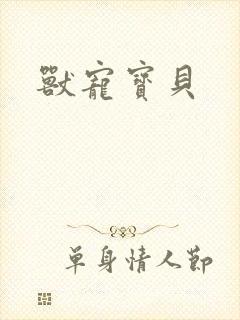 獸寵寶貝
單身情人節